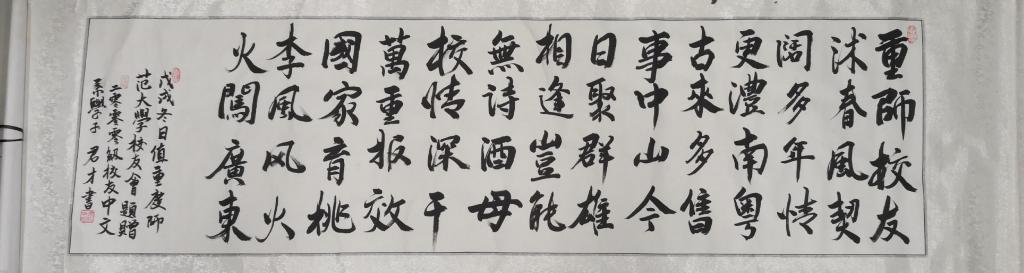 重師校友
沭春風契
闊多年情
更澧南粤
古來多舊
事中山今
日聚群雄
相逢豈能
無詩酒母
校情深干
萬重报效
國家育桃
李風风火
火闖廣東
戊戌冬日值重慶師
范大學校友會題贈
二零零零級校友中文
系學子君才書